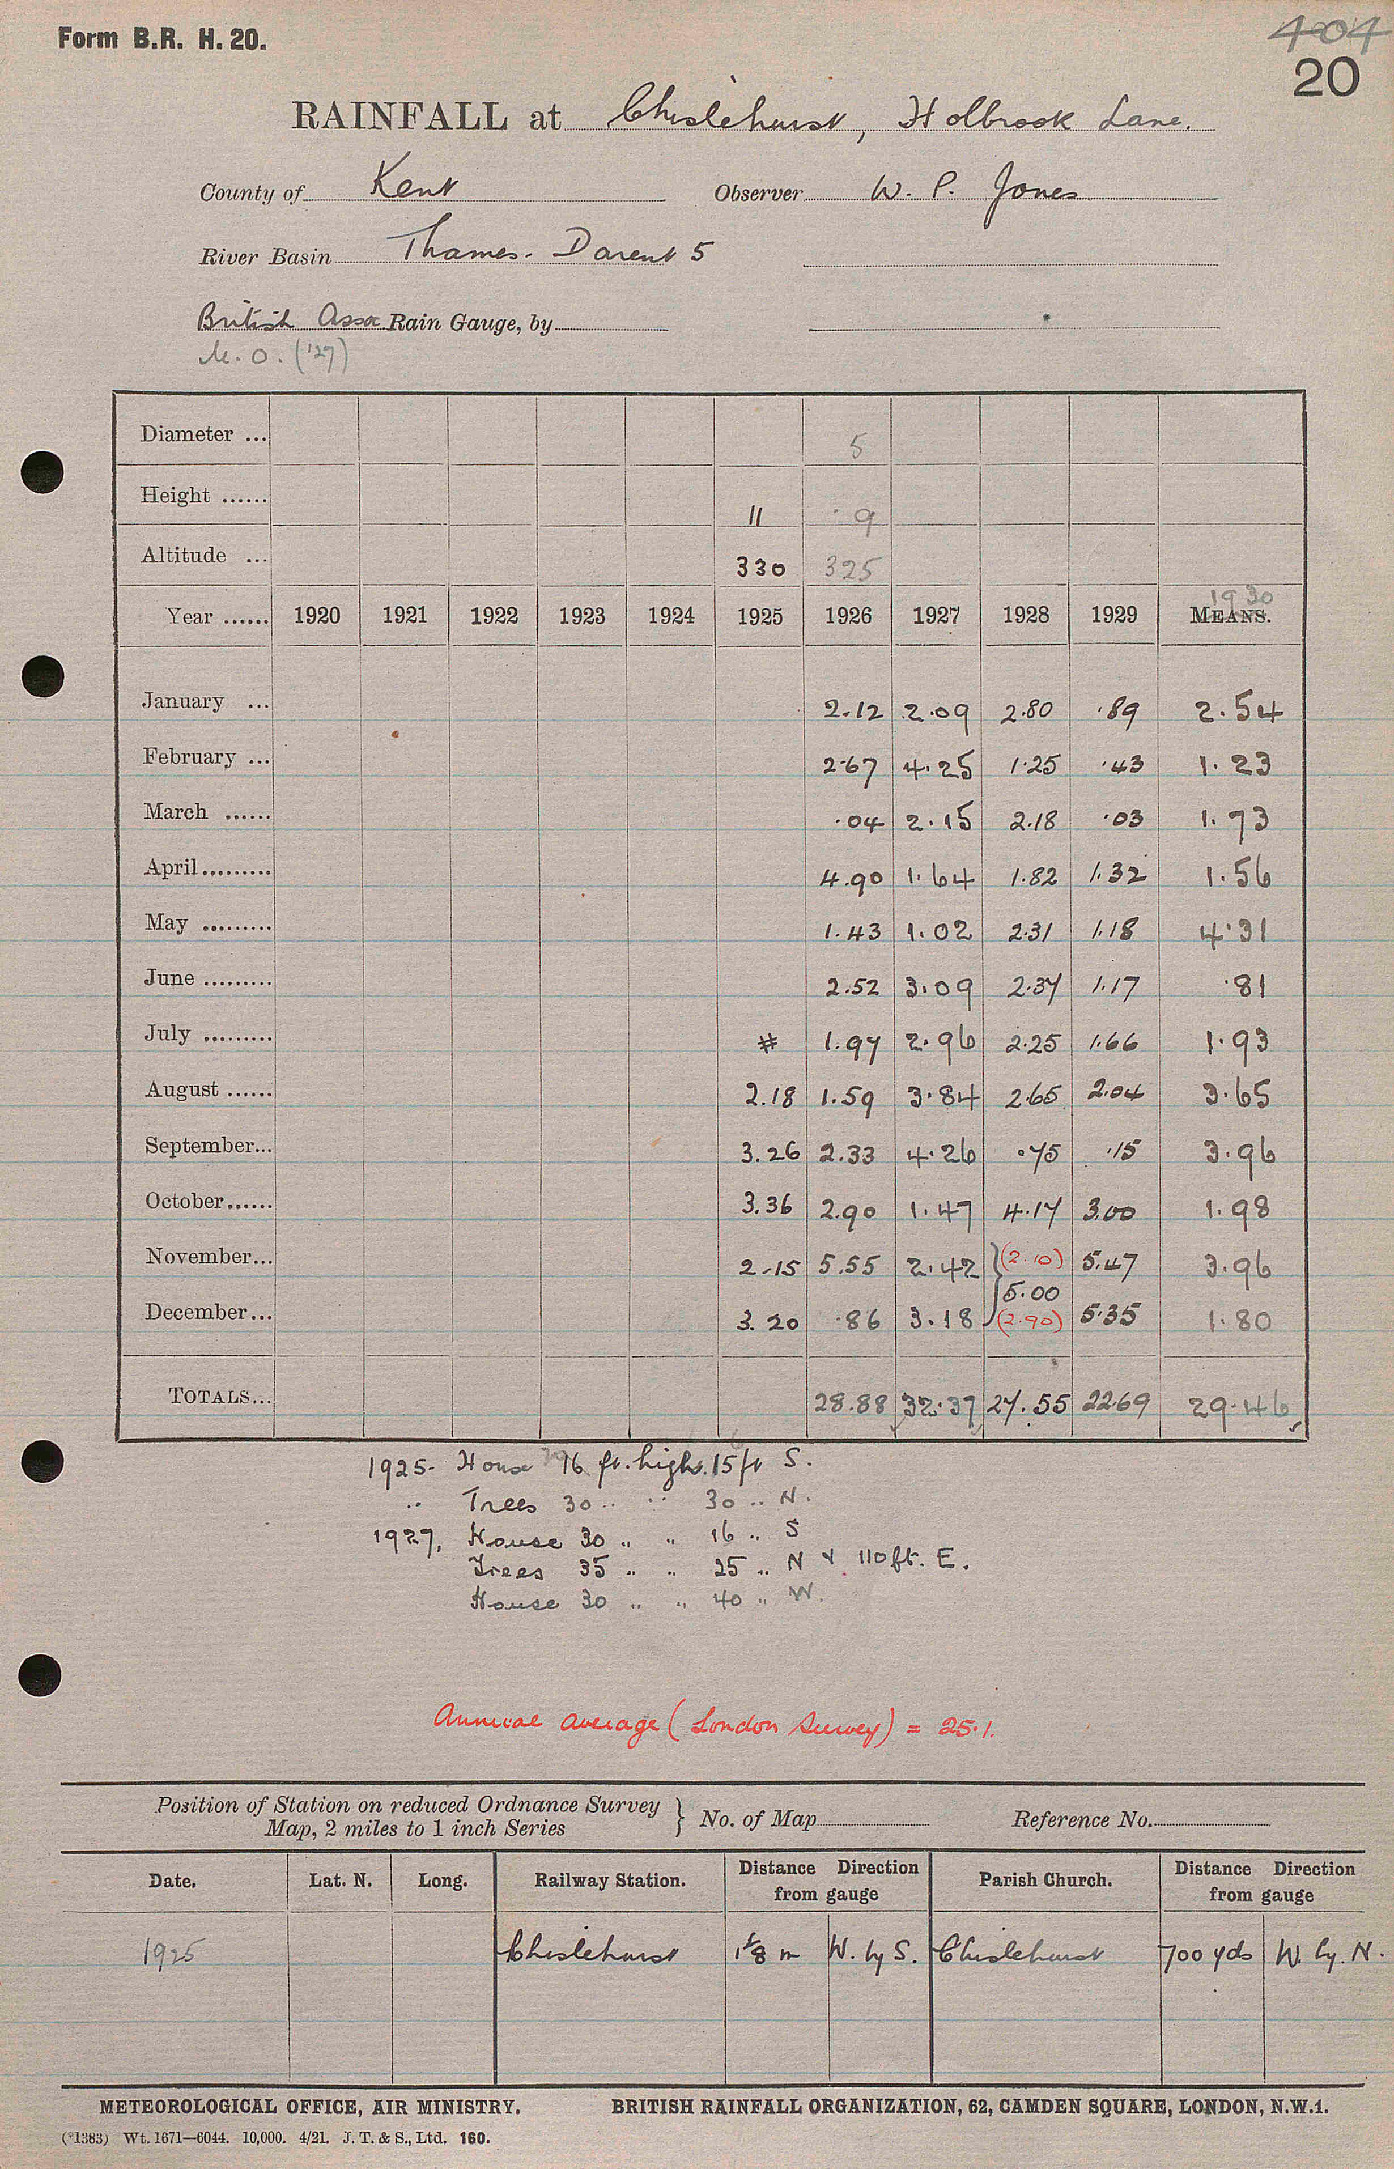 Form B.R. H. 20.
404
20
RAINFALL at Chislehurst, Holbrook Lane.
County of Kent Observer W. P. Jones
River Basin Thames - Darent 5
British Assoc Rain Gauge, by
M. O. ('27)
Diameter ... 5
Height ...... 11 9
Altitude ... 330 325
1930
Year ...... 1920 1921 1922 1923 1924 1925 1926 1927 1928 1929 MEANS.
January ... 2.12 2.09 2.80 .89 2.54
February ... 2.67 4.25 1.25 .43 1.23
March ...... .04 2.15 2.18 .03 1.73
April......... 4.90 1.64 1.82 1.32 1.56
May ......... 1.43 1.02 2.31 1.18 4.31
June ......... 2.52 3.09 2.37 1.17 .81
July ......... # 1.97 2.96 2.25 1.66 1.93
August ...... 2.18 1.59 3.84 2.65 2.04 3.65
September... 3.26 2.33 4.26 .75 .15 3.96
October...... 3.36 2.90 1.47 4.17 3.00 1.98
November... 2.15 5.55 2.42 (2.10) 5.47 3.96
5.00
December... 3.20 .86 3.18 (2.90) 5.35 1.80
TOTALS... 28.88 32.37 27.55 22.69 29.46
1925- House 16 ft. high. 15 ft S.
" Trees 30 " " 30 " N.
1927. House 30 " " 16 " S
Trees 35 " " 25 " N & 110 ft. E.
House 30 " " 40 " W.
Annual average (London Survey) = 25.1.
Position of Station on reduced Ordnance Survey
Map, 2 miles to 1 inch Series } No. of Map Reference No.
Date. Lat. N. Long. Railway Station. Distance Direction from gauge Parish Church. Distance Direction from gauge
1925 Chislehurst 1 1/8 m W. by S. Chislehurst 700 yds W. by. N.
METEOROLOGICAL OFFICE, AIR MINISTRY. BRITISH RAINFALL ORGANIZATION, 62, CAMDEN SQUARE, LONDON, N.W.1.
(*1383) Wt. 1671—6044. 10,000. 4/21. J. T. & S., Ltd. 160.